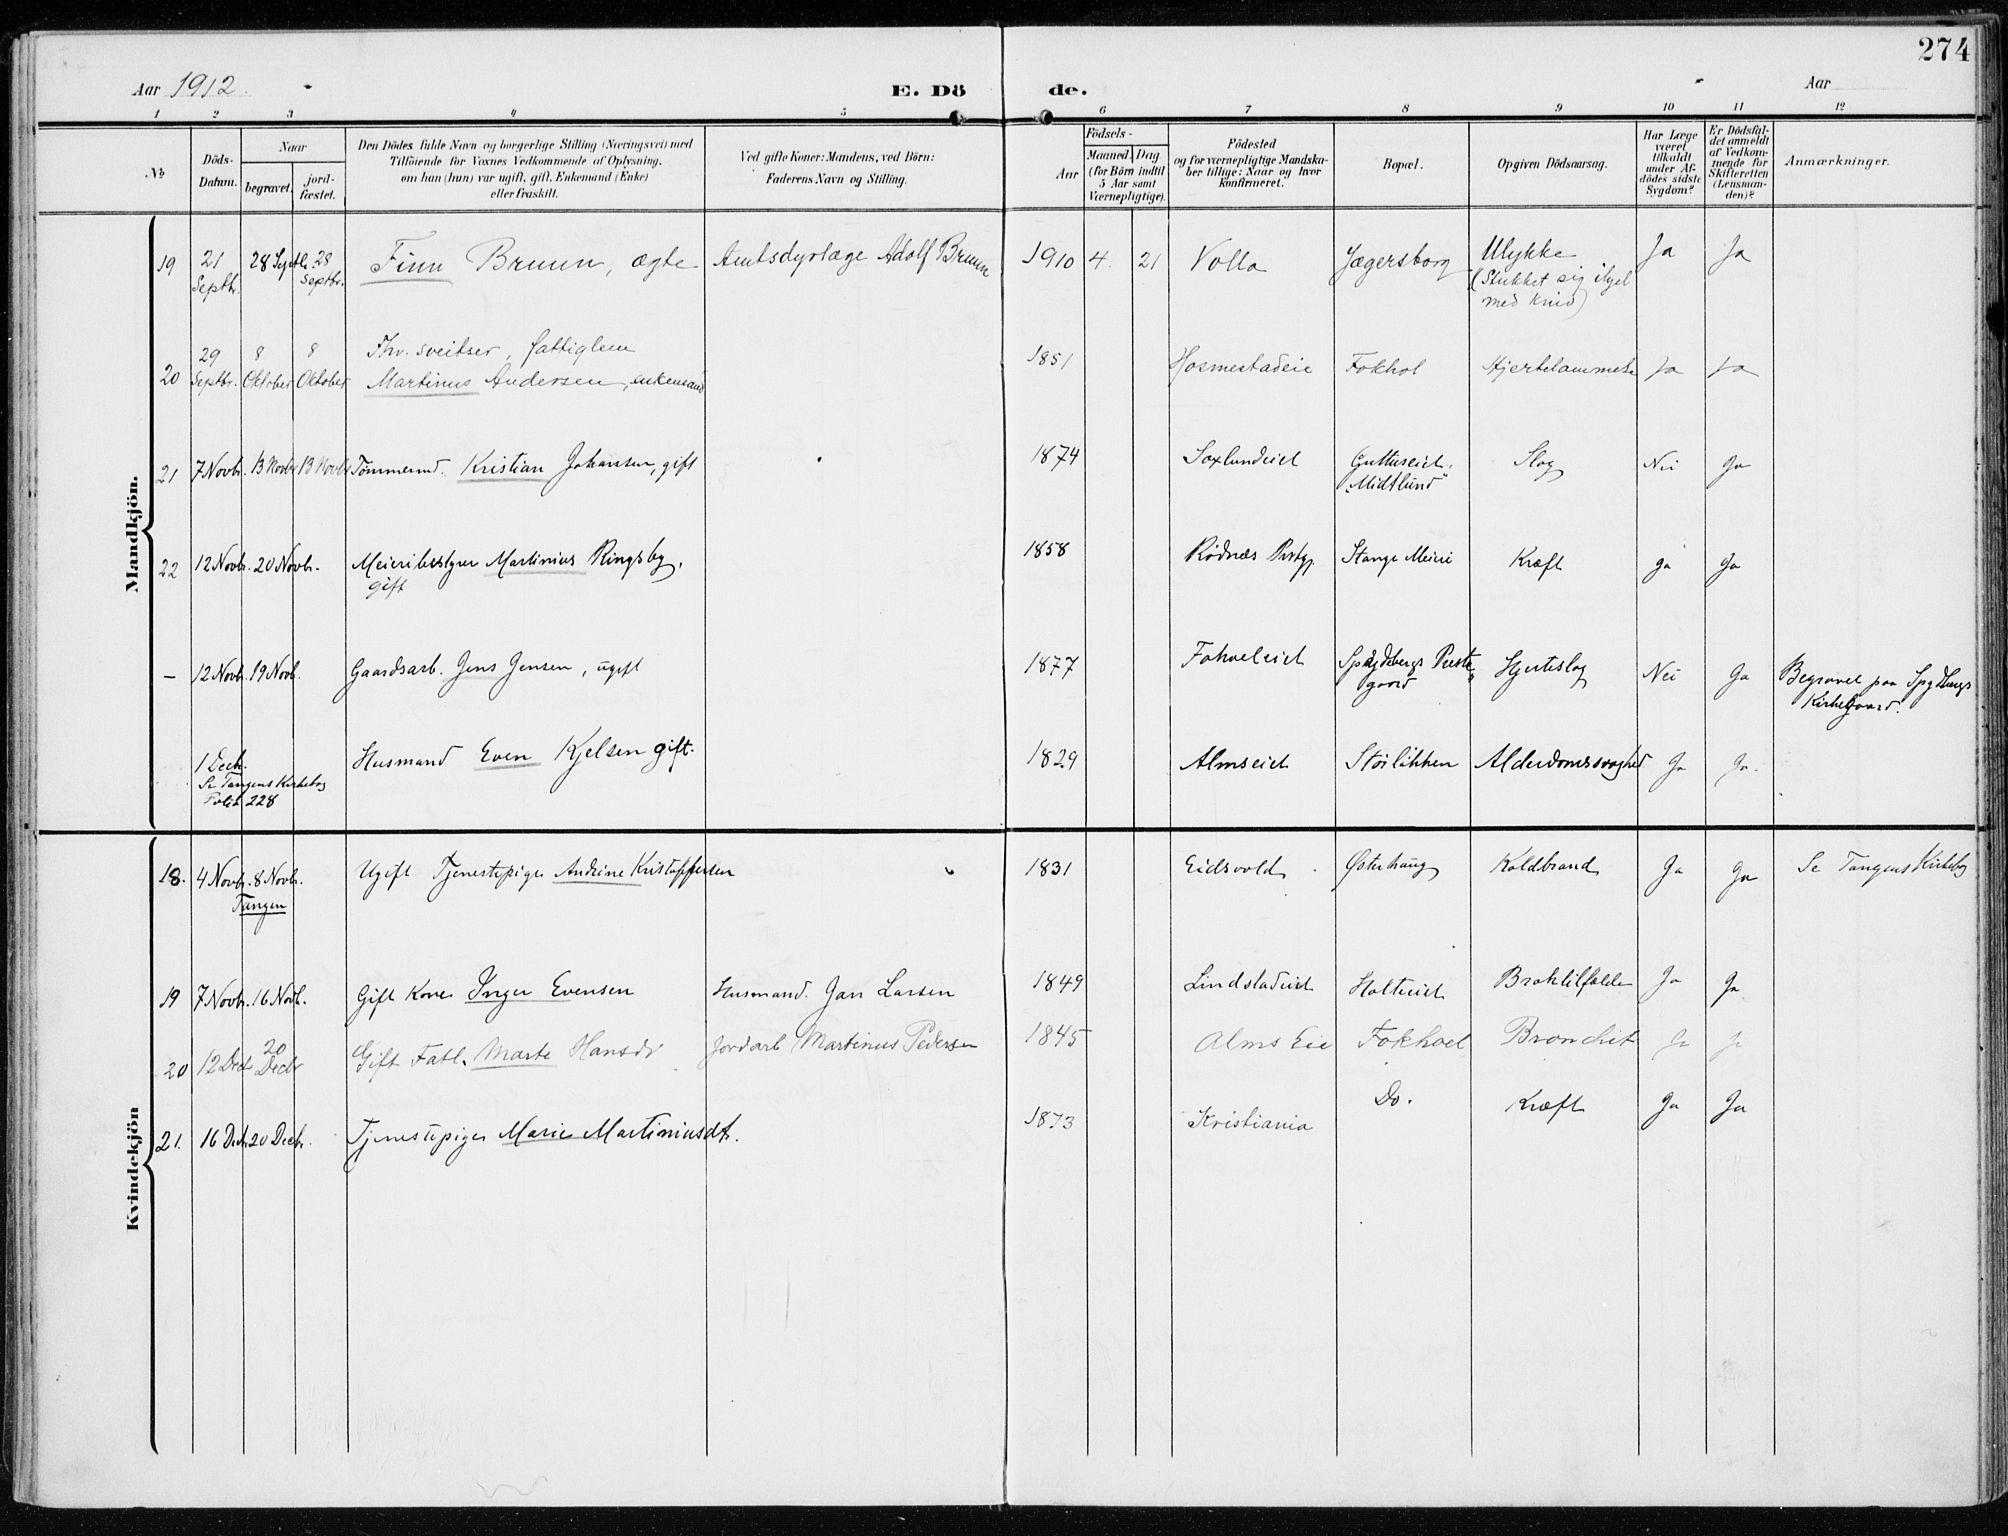 274
Aar 1912.
E. Dö de.
Aar
1 2 3 4 5 6 7 8 9 10 11 12
№
Döds-
Datum.
Naar
begravet.
jord-
fæstet.
Den Dödes fulde Navn og borgerlige Stilling (Næringsvei) med
Tilföiende for Voxnes Vedkommende af Oplysning,
om han (hun) var ugift, gift, Enkemand (Enke)
eller fraskilt.
Ved gifte Koner: Mandens, ved Börn:
Faderens Navn og Stilling.
Födsels-
Aar
Maaned. Dag
(for Börn indtil
5 Aar samt
Værnepligtige).
Födested
og for værnepligtige Mandska-
ber tillige: Naar og hvor
konfirmeret.
Bopæl.
Opgiven Dödsaarsag.
Har Læge
været
tilkaldt
under Af-
dödes sidste
Sygdom?
Er Dödsfal-
det anmeldt
af Vedkom-
mende for
Skifteretten
(Lensman-
den)?
Anmærkninger.
Mandkjön.
19 21 Septbr. 28 Septbr. 28 Septbr. Finn Bruun, ægte Amtsdyrlæge Adolf Bruun 1910 4. 21 Volla Jægersborg Ulykke Ja Ja
(Stukket sig ihjel
med kniv)
20 29 Septbr. 8 Oktober 8 Oktober Fhv. sveitser, fattiglem
Martinus Andersen, enkemand 1851 Hosmestadeie Fokhol Hjertelammelse Ja Ja
21 7 Novbr. 13 Novbr 13 Novbr Tømmermd. Kristian Johansen, gift 1874 Saxlundeiet Guttuseiet, Slag Nei Ja
"Midtlund"
22 12 Novbr. 20 Novbr. Meieribestyrer Martinius Ringsby, 1858 Rødnæs Prstgj. Stange Meieri Kræft Ja Ja
gift
— 12 Novbr. 19 Novb. Gaardsarb. Jens Jensen, ugift 1877 Fokoleiet Spydebergs Preste- Hjerteslag Nei Ja Begravet paa Spydbergs
gaard Kirkegaard.
1 Decb. Husmand Even Kjelsen gift. 1829 Almseiet Støiløkken Alderdomssvaghed Ja Ja.
Se Tangens Kirkebog
Folio 228
Kvindekjön
18. 4 Novbr. 8 Novbr. Ugift Tjenestepige Andrine Kristoffersen 1831 Eidsvold Østerhaug Koldbrand Ja Ja Se Tangens Kirkebog
Tangen
19 7 Novbr. 16 Novb. Gift Kone Inger Evensen Husmand. Jan Larsen 1849 Lindstadeiet Holteiet Broktilfælde Ja Ja
20 12 Decb 20 Decbr Gift Fatl. Marte Hansdr Jordarb Martinus Pedersen 1845 Alms Eie Fokhoel Bronchit Ja Ja
21. 16 Decb. 20 Decbr. Tjenestepige Marie Martiniusdt. 1873 Kristiania Do. Kræft Ja Ja